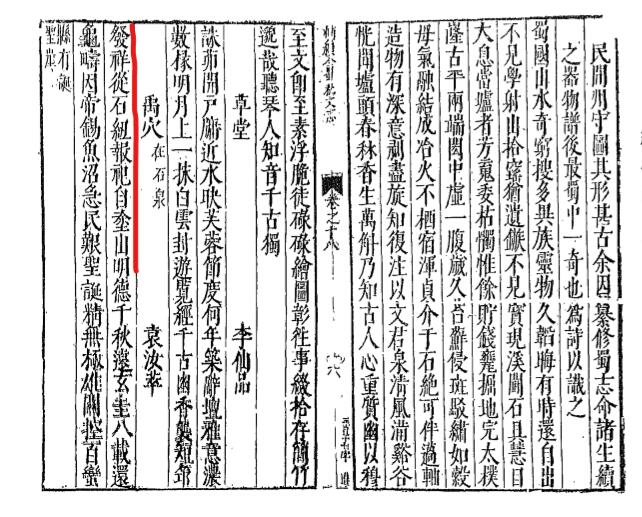 民間州守圖其形甚古余因纂修蜀志命諸生續
之器物譜後最蜀中一奇也為詩以識之
蜀國山水奇窮搜多異族靈物久韜晦有時還自出
不見學射山拾猶遺鏃不見寶現溪石具慧目
大息當壚者方委枯髑惟餘貯錢甕掘地完太樸
古平兩端閎中虛一腹歲久苔蘚侵斑駁繡如縠
母氣融結成冶火不栖宿渾貞介于石絕可伴薖軸
造物有深意剝盡旋知復注以文君泉清風滿谿谷
恍聞壚頭春秫香生萬斛乃知古人心重質幽以穆
卷之十八
六
至文創至素浮脆徒碌碌繪圖彰往事拾存簡竹
逸哉聽琴人知音千古獨
草堂 李仙品
誅茆開戶牖近水映芙蓉節度何年築辭壇雅意濃
數椽明月上一抹白雲封遊覽經千古幽香襲短筇
禹穴在石泉 袁汝萃
發祥從石紐報祀自塗山明德千秋遠玄圭八載還
龜疇因帝錫魚沼急民艱聖誕精無極雄關控百蠻
縣有誕
聖崖